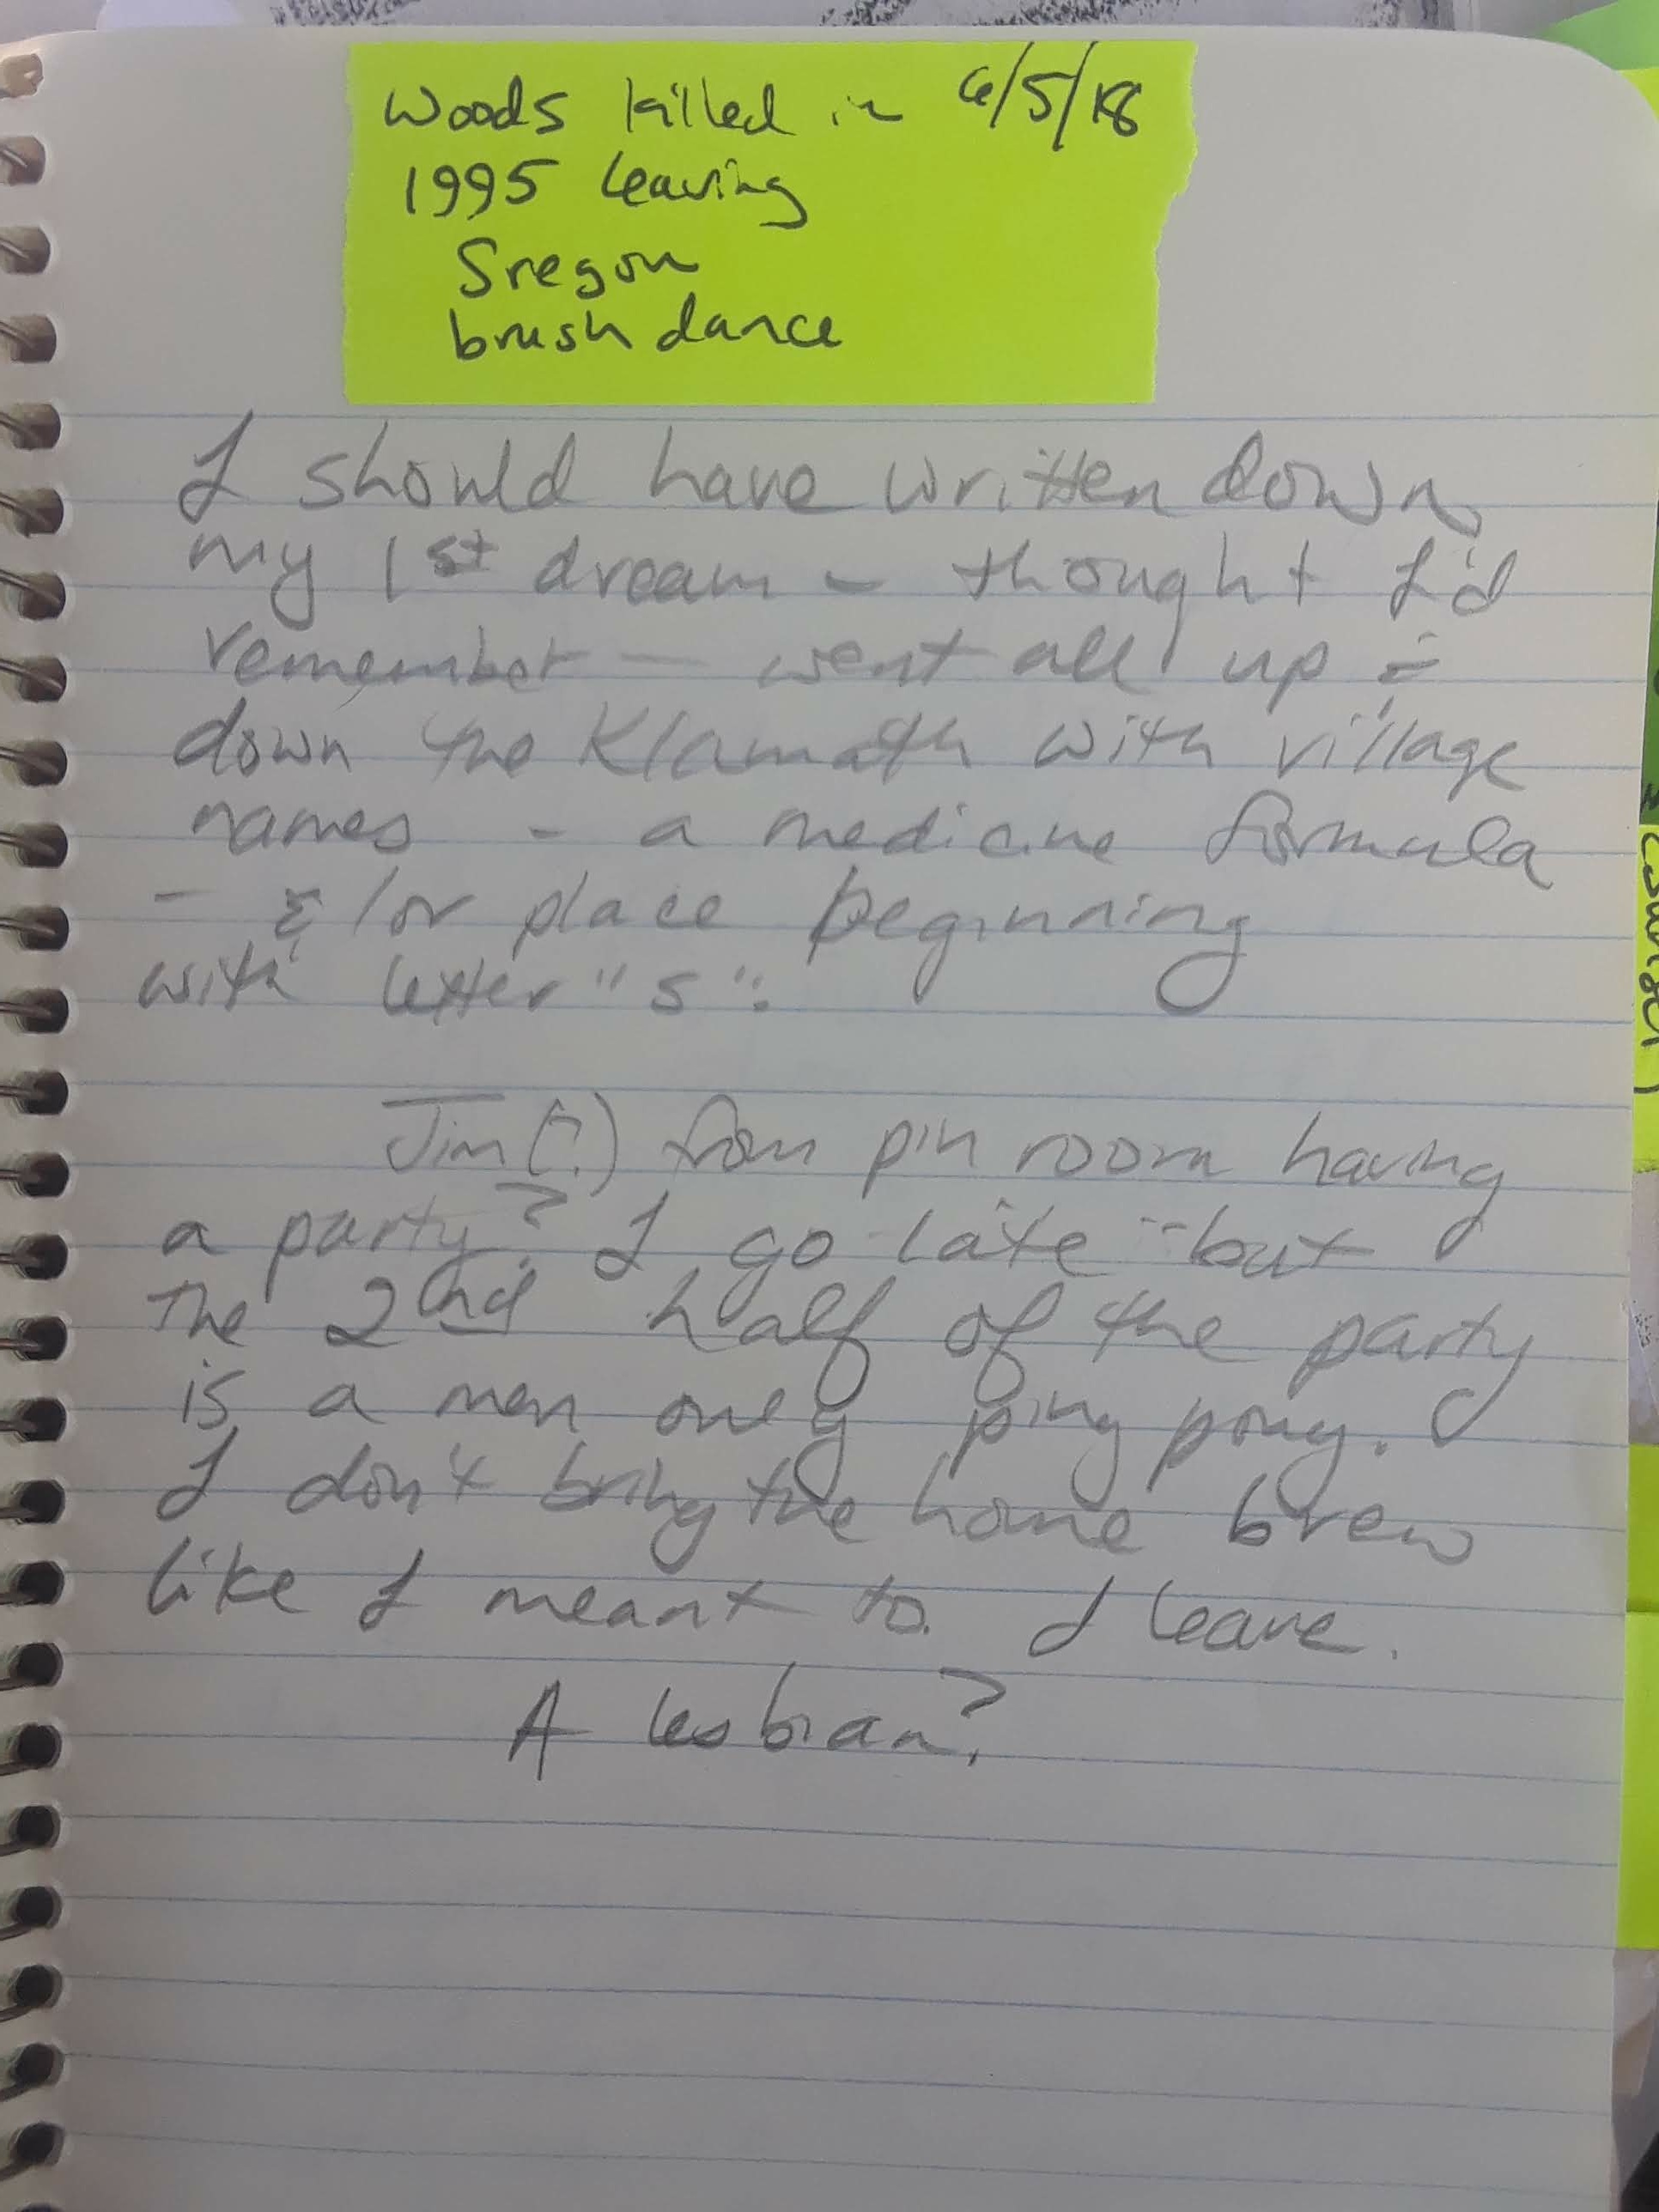 Woods killed in 6/5/18
1995 leaving
Sregon
brush dance
I should have written down
my 1st dream - thought I'd
remember — went all up &
down the Klamath with village
names - a medicine formula
- & / or place beginning
with letter "s".
Jim (?) from pin room having
a party? I go late - but
The 2nd half of the party
is a men only ping pong.
I don't bring the home brew
like I meant to. I leave.
A lesbian?